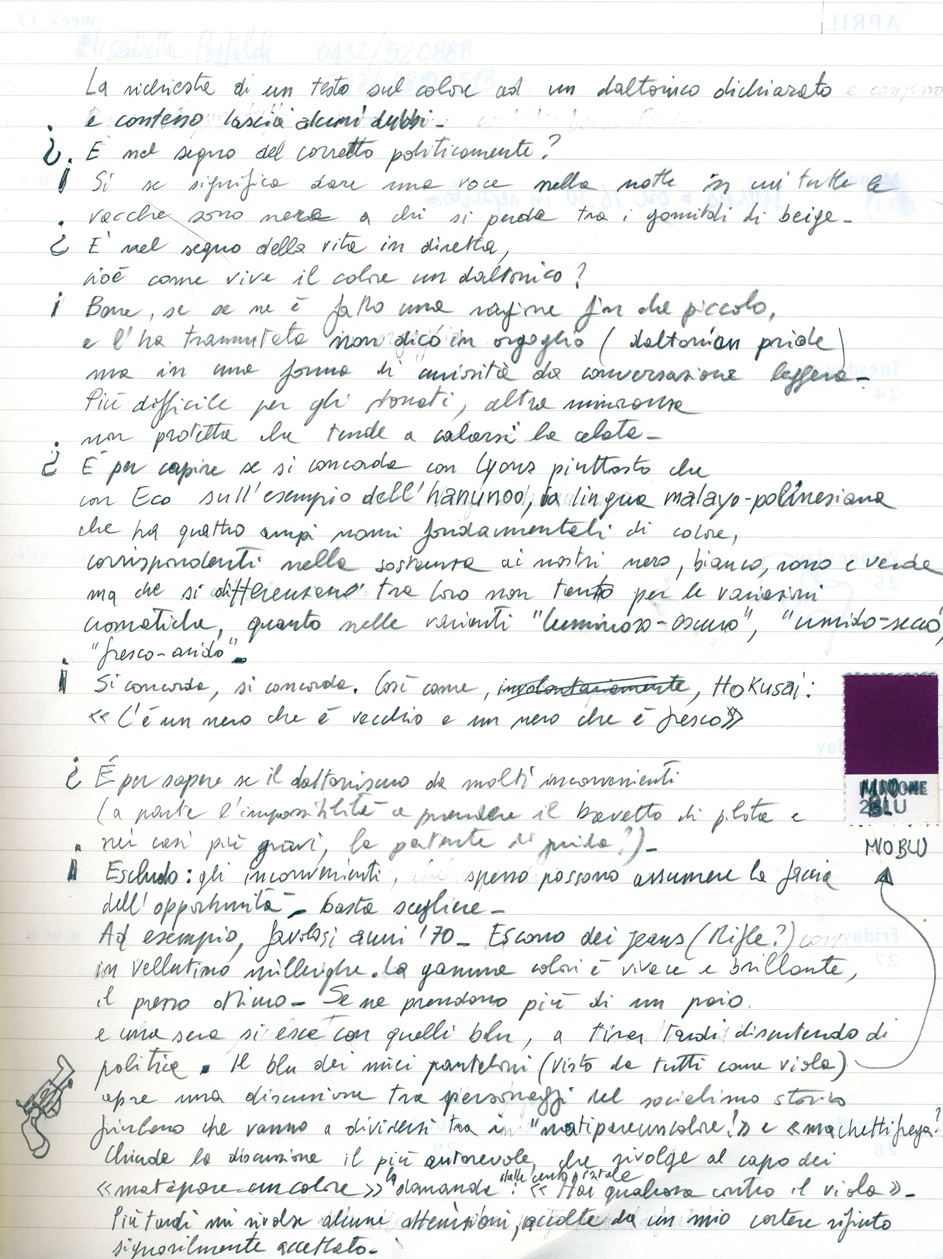 APRIL
week 17
Elisabetta 0432/520888
La richiesta di un testo sul colore ad un daltonico dichiarato
e confesso lascia alcuni dubbi –
¿ È nel segno del corretto politicamente?
¡ Sì se significa dare una voce nella notte in cui tutte le
vacche sono nere a chi si perde tra i gomitoli di beige –
¿ È nel segno della vita in diretta,
cioè come vive il colore un daltonico?
¡ Bene, se se ne è fatto una ragione fin da piccolo,
e l'ha tramutata non dico in orgoglio (daltonian pride)
ma in una forma di curiosità da conversazione leggera –
Più difficile per gli stonati, altra minoranza
non protetta che tende a calarsi la celata –
¿ È per capire se si concorda con Lyons piuttosto che
con Eco sull'esempio dell'hanunoo, la lingua malayo-polinesiana
che ha quattro ampi nomi fondamentali di colore,
corrispondenti nella sostanza ai nostri nero, bianco, rosso e verde
ma che si differenziano tra loro non tanto per le variazioni
cromatiche, quanto nelle varianti "luminoso-oscuro", "umido-secco",
"fresco-arido" –
¡ Si concorda, si concorda. Così come, involontariamente, Hokusai:
<< C'è un nero che è vecchio e un nero che è fresco >>
¿ È per sapere se il daltonismo dà molti inconvenienti
(a parte l'impossibilità a prendere il brevetto di pilota e
nei casi più gravi, la patente di guida?) –
¡ Escludo: gli inconvenienti, spesso possono assumere la faccia
dell'opportunità – basta scegliere –
Ad esempio, favolosi anni '70 – Escono dei jeans (Rifle?)
in vellutino millerighe. La gamma colori è vivace e brillante,
il prezzo ottimo – Se ne prendono più di un paio.
e una sera si esce con quelli blu, a tirar tardi discutendo di
politica. Il blu dei miei pantaloni (visto da tutti come viola)
apre una discussione tra personaggi del socialismo storico
friulano che vanno a dividersi tra un "matipareuncolore!>> e <<machettifrega?
Chiude la discussione il più autorevole, che rivolge al capo dei
<<matipare un colore>> la domanda: << Hai qualcosa contro il viola >> –
Più tardi mi rivolse alcune attenzioni, accolte da un mio cortese rifiuto
signorilmente accettato –
PANTONE
2BLU
MIO BLU
Tuesday
24
Wednesday
25
Friday
27
28